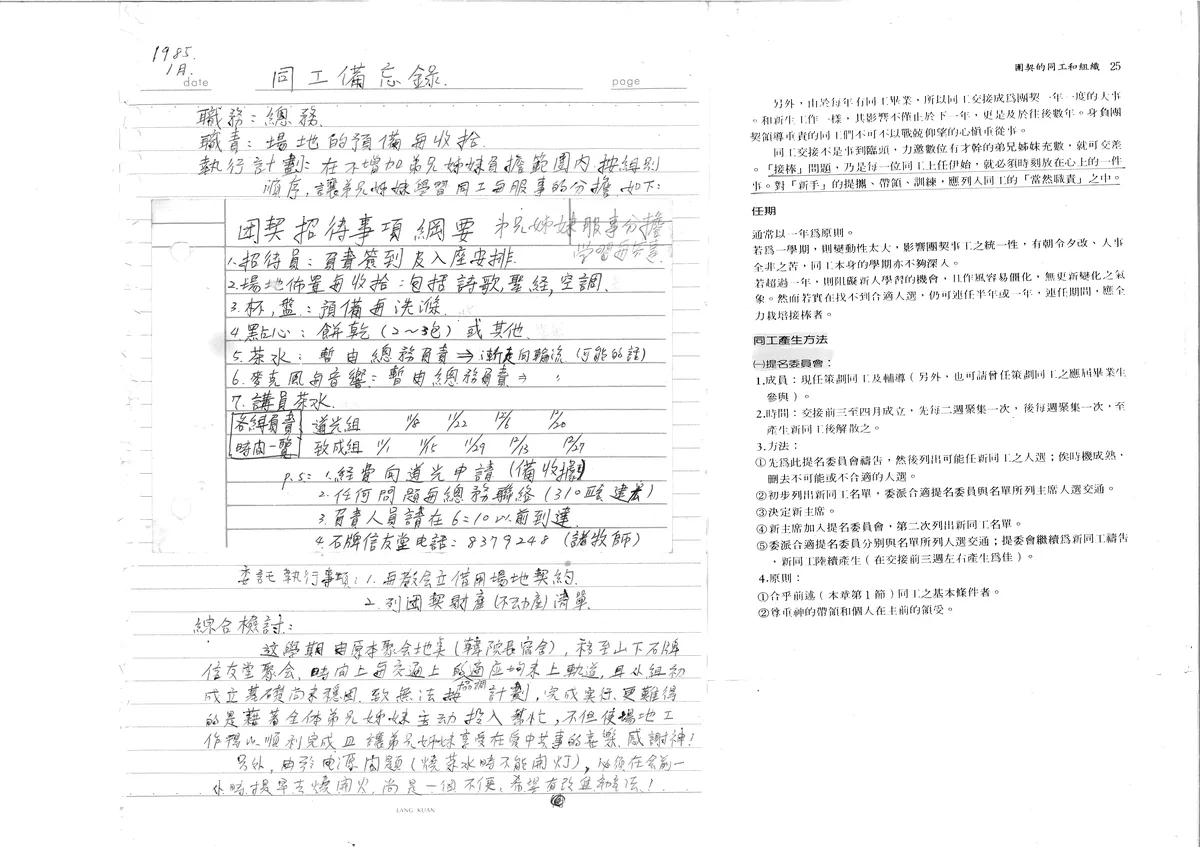 1985.
1月.
date
同工備忘錄.
page
職務：總務.
職責：場地的預備與收拾.
執行計劃：在不增加弟兄姊妹負擔範圍內,按組別
順序,讓弟兄姊妹學習同工與服事的分擔.如下:
团契招待事項綱要
弟兄姊妹服事分擔
1.招待員：負責簽到及入座安排.
2.場地佈置與收拾：包括詩歌,聖經,空調.
3.杯,盤：預備與洗滌.
4.點心：餅乾(2～3包)或其他.
5.茶水：暫由總務負責⇒漸走向輪流(可能的話)
6.麥克風與音響：暫由總務負責⇒ 〃
7.講員茶水.
各組負責 道光組 11/8 11/22 12/6 12/20
時间一覽 致成組 11/1 11/15 11/29 12/13 12/27
P.S: 1.經費向道光申請(備收據)
2.任何問題與總務聯絡(310 建宏)
3.負責人員請在6:10以前到達.
4.石牌信友堂电話：8379248(諸牧師)
委託執行事項：1.與教会立借用場地契約.
2.列团契財產(不动產)清單.
綜合檢討：
這學期由原本聚会地点(韓院長宿舍),移至山下石牌
信友堂聚会.時间上與交通上的適应均未上軌道,且小組初
成立基礎尚未穩固.致無法按協調計劃,完成實行.更難得
的是藉著全体弟兄姊妹主动投入幫忙,不但使場地工
作得以順利完成且讓弟兄姊妹享受在愛中共事的喜樂.感謝神!
另外,由於电源问題(燒茶水時不能開灯),必須在会前一
小時提早去燒開水,尚是一個不便,希望有改進辦法!
LANG KUAN
團契的同工和組織 25
另外，由於每年有同工畢業，所以同工交接成為團契一年一度的大事
。和新生工作一樣，其影響不僅止於下一年，更是及於往後數年。身負團
契領導重責的同工們不可不以戰兢仰望的心慎重從事。
同工交接不是事到臨頭，力邀數位有才幹的弟兄姊妹充數，就可交差
。「接棒」問題，乃是每一位同工上任伊始，就必須時刻放在心上的一件
事。對「新手」的提攜、帶領、訓練，應列入同工的「當然職責」之中。
任期
通常以一年為原則。
若為一學期，則變動性太大，影響團契事工之統一性，有朝令夕改、人事
全非之苦，同工本身的學期亦不夠深入。
若超過一年，則阻礙新人學習的機會，且作風容易僵化，無更新變化之氣
象。然而若實在找不到合適人選，仍可連任半年或一年，連任期間，應全
力栽培接棒者。
同工產生方法
㈠提名委員會：
1.成員：現任策劃同工及輔導（另外，也可請曾任策劃同工之應屆畢業生
參與）。
2.時間：交接前三至四月成立，先每二週聚集一次，後每週聚集一次，至
產生新同工後解散之。
3.方法：
①先為此提名委員會禱告，然後列出可能任新同工之人選；俟時機成熟，
刪去不可能或不合適的人選。
②初步列出新同工名單，委派合適提名委員與名單所列主席人選交通。
③決定新主席。
④新主席加入提名委員會，第二次列出新同工名單。
⑤委派合適提名委員分別與名單所列人選交通；提委會繼續為新同工禱告
，新同工陸續產生（在交接前三週左右產生為佳）。
4.原則：
①合乎前述（本章第1節）同工之基本條件者。
②尊重神的帶領和個人在主前的領受。